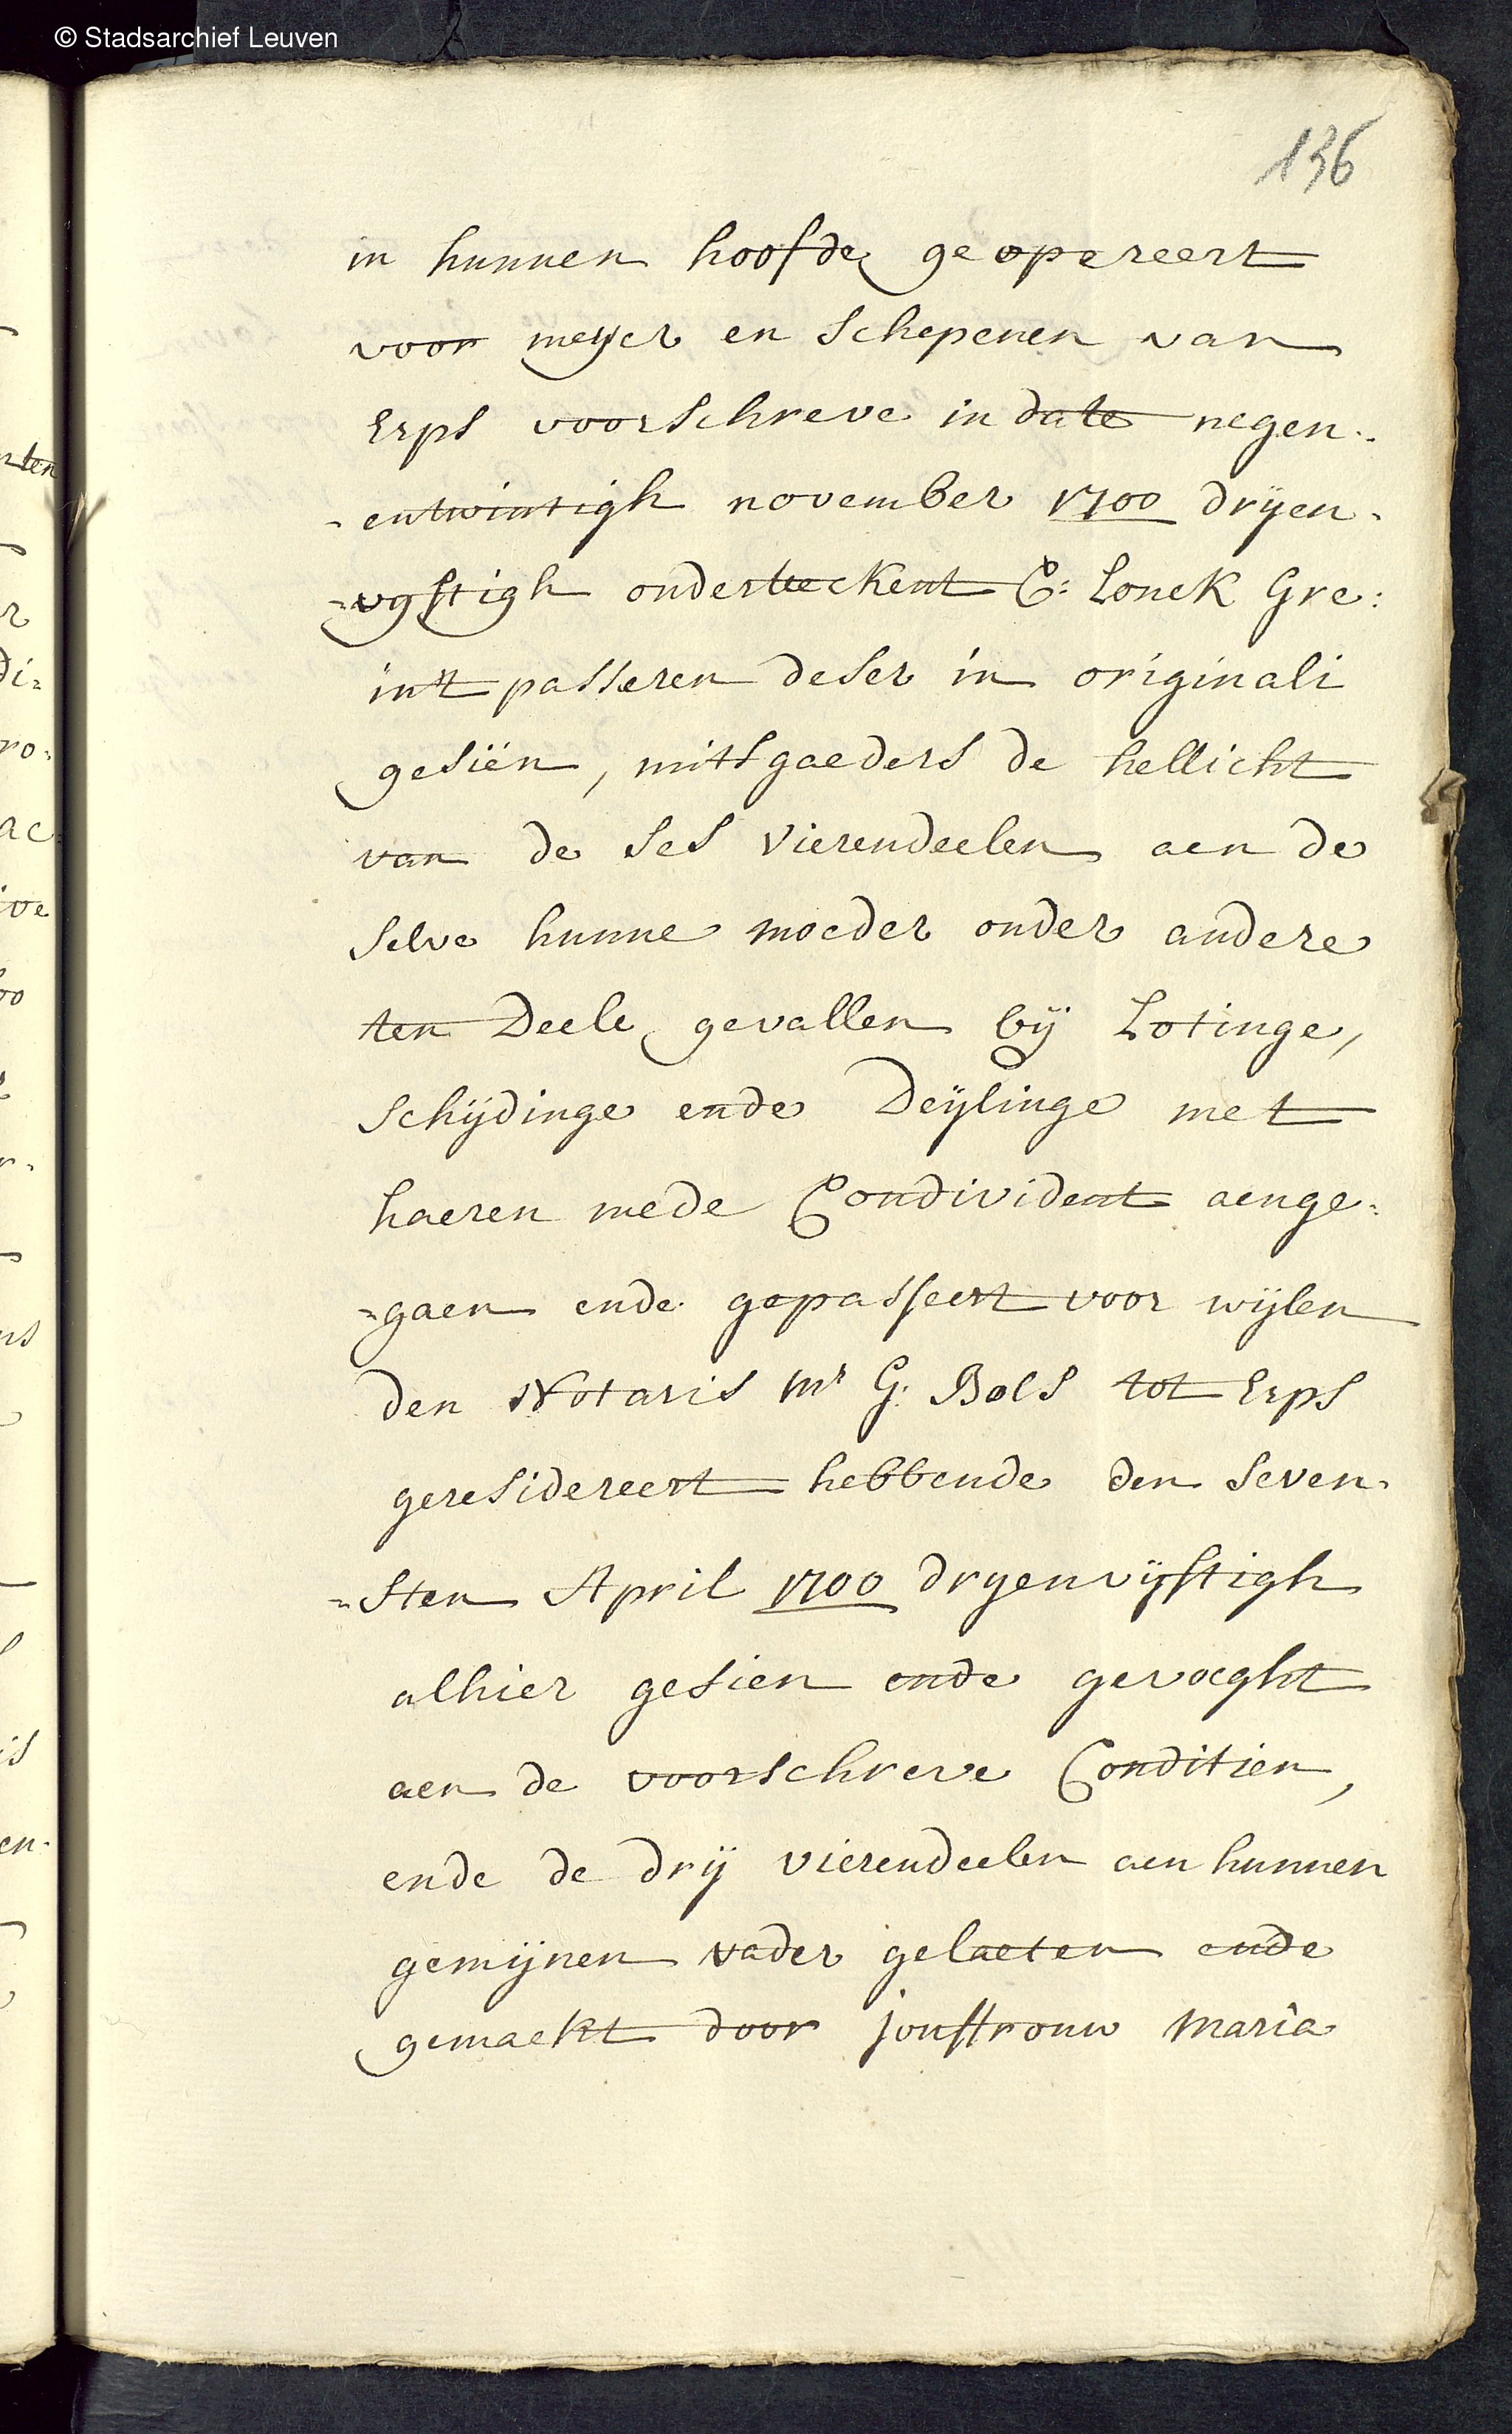 © Stadsarchief Leuven
136
in hunnen hoofde geopereert
voor meyer en schepenen van
Erps voorschreve in date negen-
-entwintigh november 1700 dryen-
-vyftigh onderteekent C: Lonck Gre:
int passeren deser in originali
gesiën, mitsgaeders de hellicht
van de ses vierendeelen aen de
selve hunne moeder onder andere
ten Deele gevallen bÿ Lotinge,
schijdinge ende Deÿlinge met
haeren mede Condivident aenge-
-gaen ende gepasseert voor wijlen
den Notaris Mr G. Bols tot Erps
geresidereert hebbende den seven-
-sten April 1700 dryenvijftigh
alhier gesien ende gevoeght
aen de voorschreve Conditien,
ende de drÿ vierendeelen aen hunnen
gemijnen vader gelaeten ende
gemaekt door jouffrouw Maria